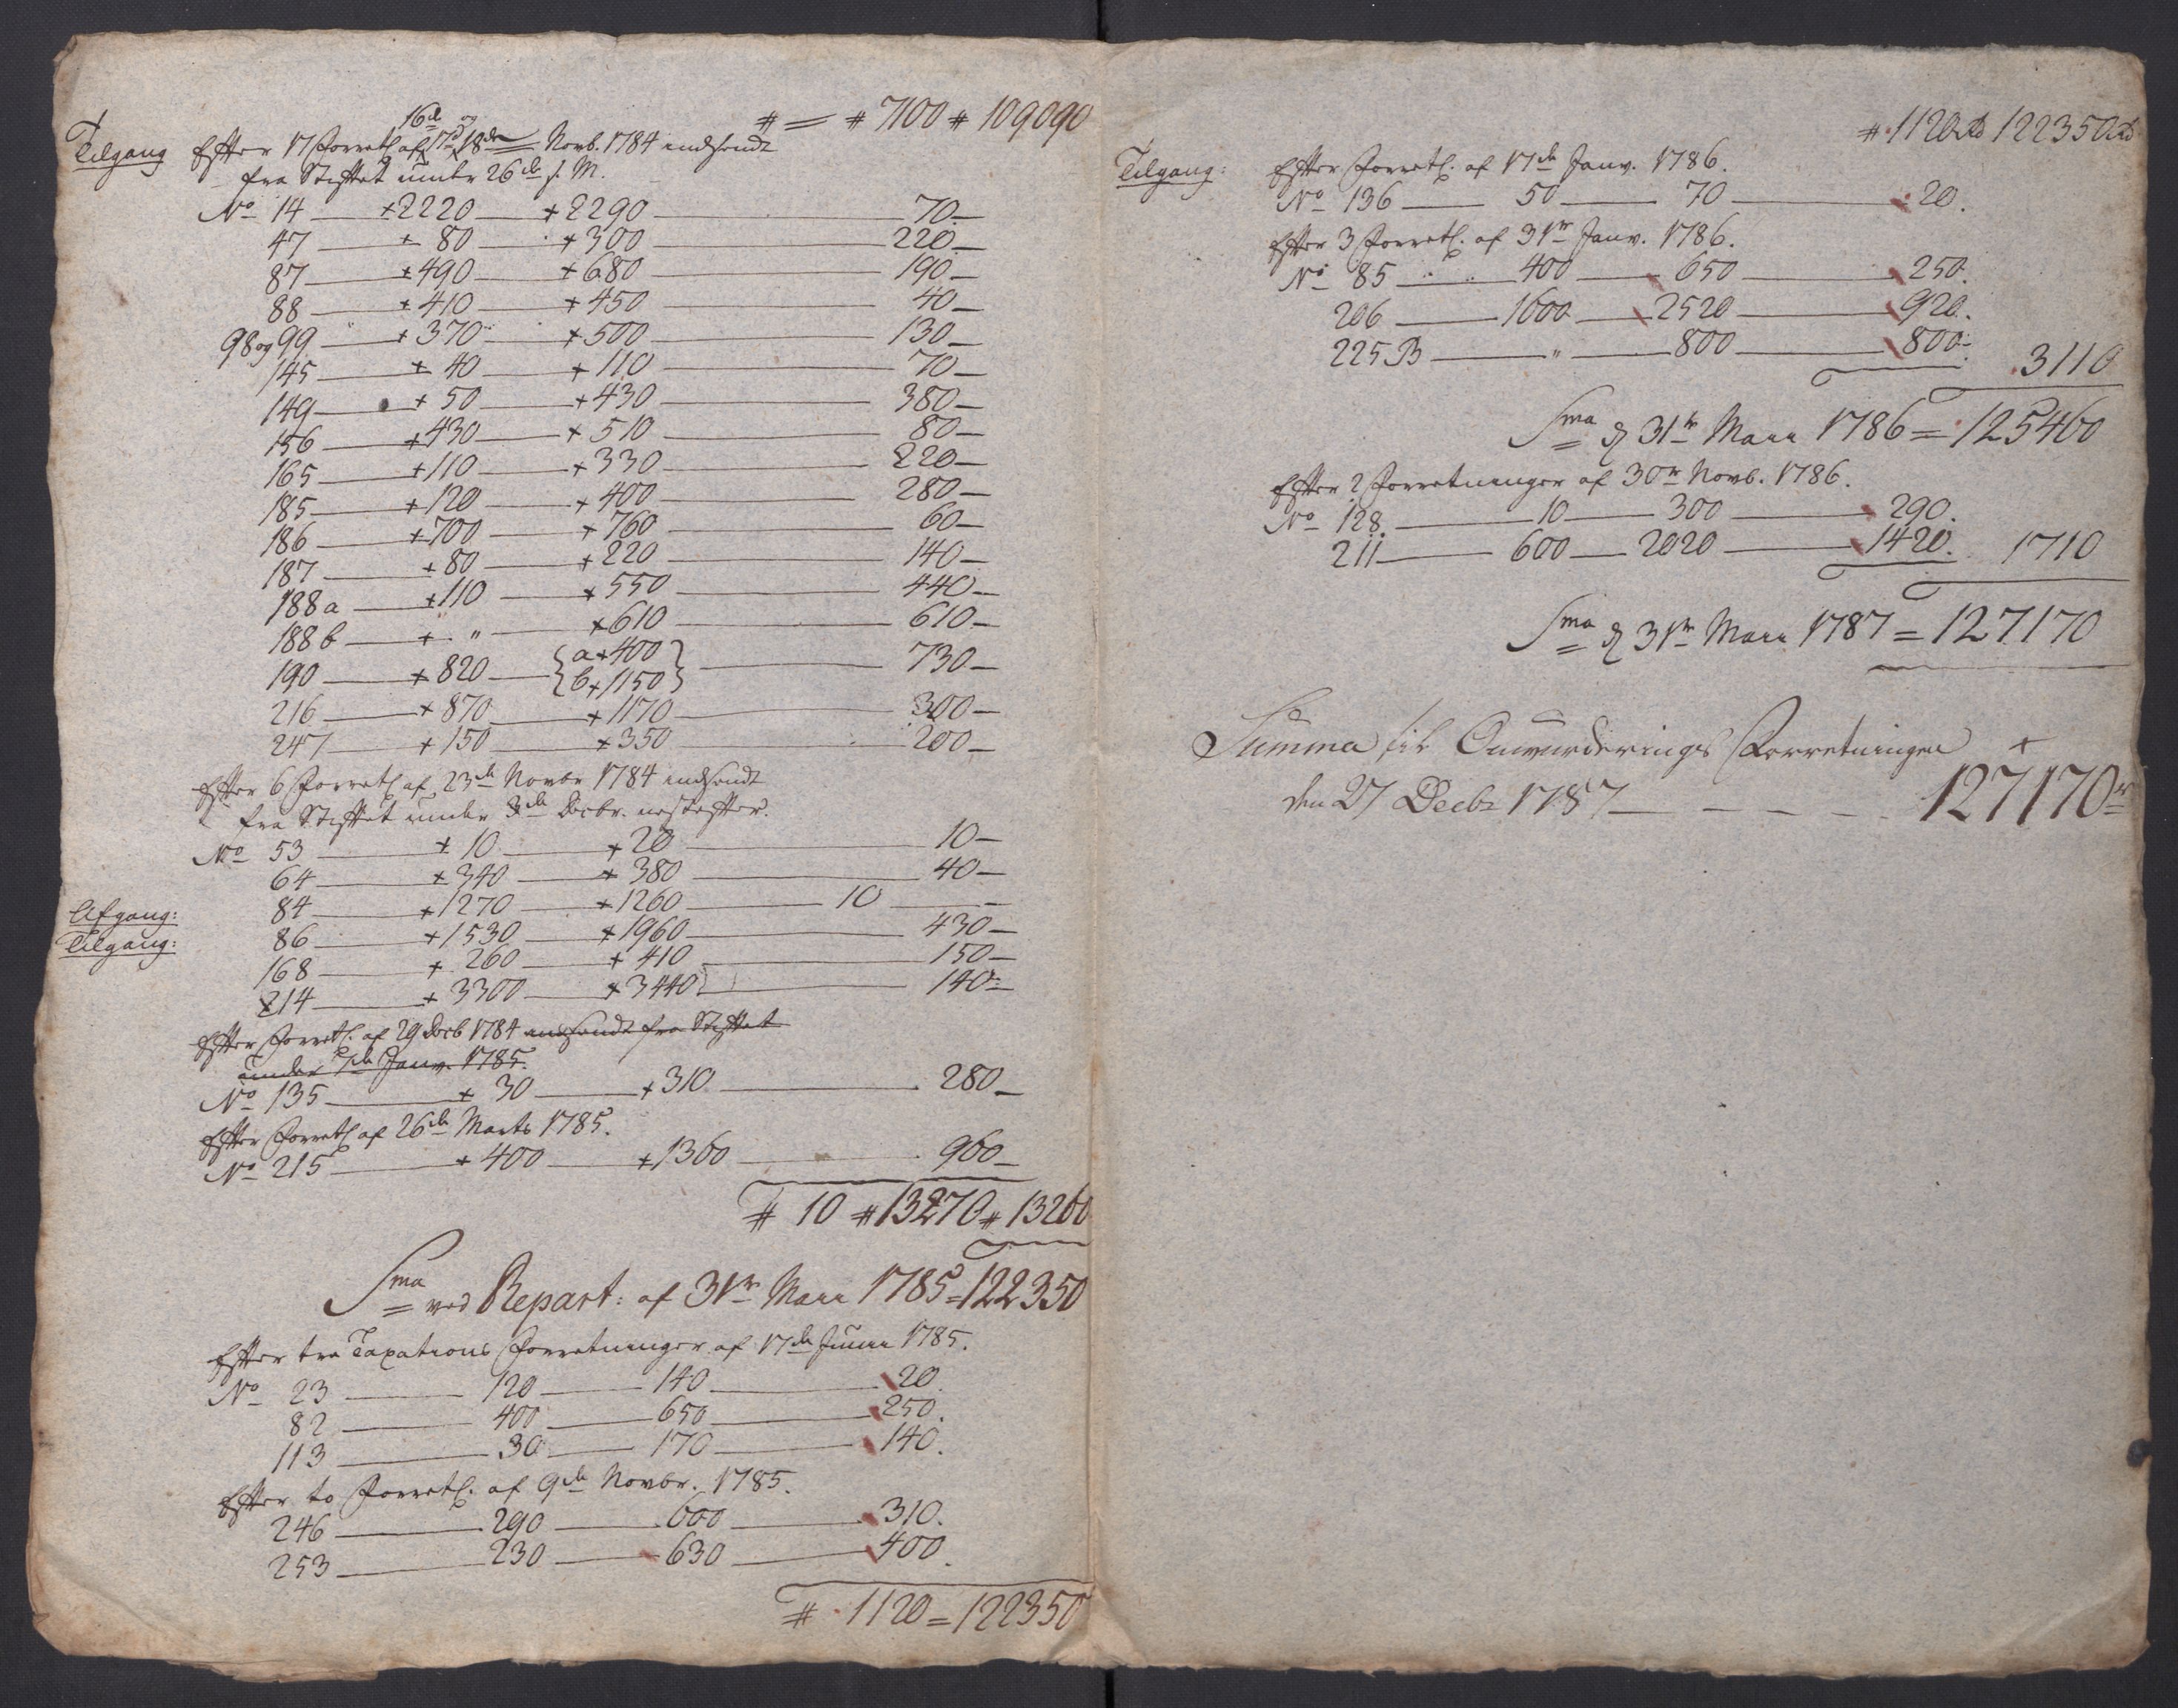 # = # 7100 # 109090
16de og
Tilgang Efter 17 Forretl af 17d 18de Novb. 1784 indsendt
fra Stiftet under 26de s. M.
No 14 — +2220 — +2290 — 70 —
47 — + 80 — +300 — 220 —
87 — +490 — +680 — 190 —
88 — +410 — +450 — 40 —
98 og 99 — +370 — +500 — 130 —
145 — + 40 — +110 — 70 —
149 — + 50 — +430 — 380 —
156 — +430 — + 510 — 80 —
165 — +110 — +330 — 220 —
185 — +120 — +400 — 280 —
186 — +700 — +760 — 60 —
187 — +80 — +220 — 140 —
188a — +110 — +550 — 440 —
188b — + " — +610 — 610 —
190 — +820 — {a +400 b +1150} — 730 —
216 — +870 — +1170 — 300 —
247 — +150 — +350 — 200 —
Efter 6 Forretl af 23de Novbr 1784 indsendt
fra Stiftet under 3de Decbr. nestefter.
No 53 — + 10 — +20 — 10 —
64 — +340 — +380 — 40 —
Afgang: 84 — +1270 — +1260 — 10 — —
Tilgang: 86 — +1530 — +1960 — 430 —
168 — + 260 — + 410 — 150 —
214 — + 3300 — +3440 — 140 =
Efter Forretl. af 29 Decb 1784 indsendt fra Stiftet
under 7de Janv. 1785.
No 135 — + 30 — +310 — 280 —
Efter Forretl af 26de Marts 1785.
No 215 — + 400 — +1360 — 960 —
# 10 # 13270 # 13260
Sma ved Repart: af 31te Marti 1785 = 122350
Efter tre Taxations Forretninger af 17de Junii 1785.
No 23 — 120 — 140 — 20.
82 — 400 — 650 — 250.
113 — 30 — 170 — 140.
Efter to Forretl. af 9de Novbr. 1785.
246 — 290 — 600 — 310.
253 — 230 — 630 — 400.
# 1120 = 122350
# 1120 Rd 122350 Rd
Tilgang: Efter Forretl. af 17de Janv. 1786.
No 136 — 50 — 70 — 20.
Efter 3 Forretl. af 31te Janv. 1786.
No 85 — 400 — 650 — 250.
206 — 1600 — 2520 — 920.
225 B — " — 800 — 800. 3110
Sma d 31te Marti 1786 = 125460
Efter 2 Forretninger af 30te Novb. 1786.
No 128 — 10 — 300 — 290.
211 — 600 — 2020 — 1420. 1710
Sma d 31te Marti 1787 = 127170
Summa til Omvurderings Forretningen +
den 27 Decbr 1787 — — — — 127170 r